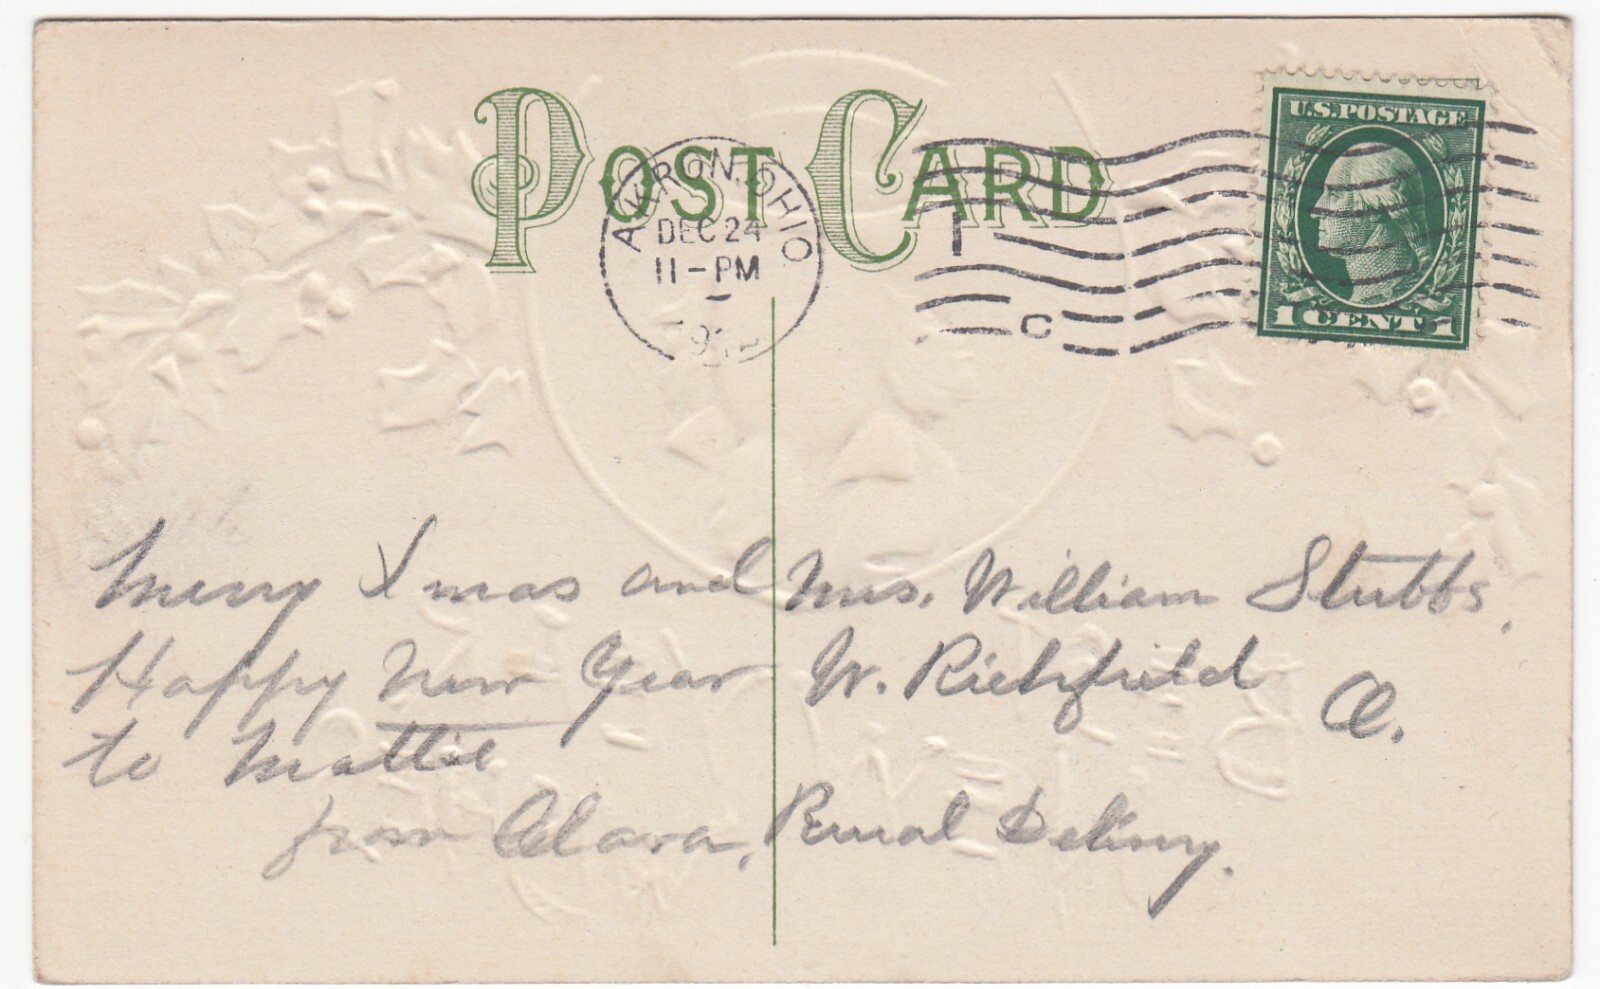 POST CARD
AKRON, OHIO
DEC 24
11-PM
1
C
U.S. POSTAGE
1 CENT 1
Merry Xmas and
Happy New Year
to Mattie
from Clara,
Mrs. William Stubbs,
W. Richfield
O.
Rural Delivery.